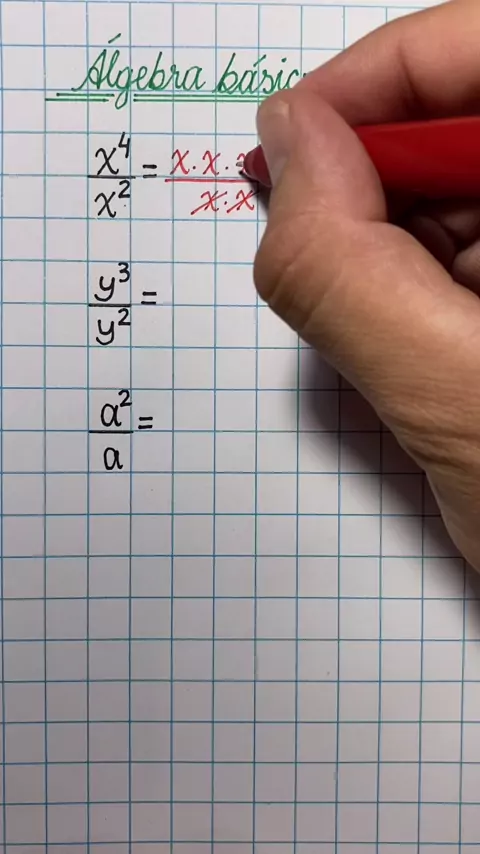 Álgebra básic
x⁴/x² = x · x ·
x · x
y³/y² =
a²/a =